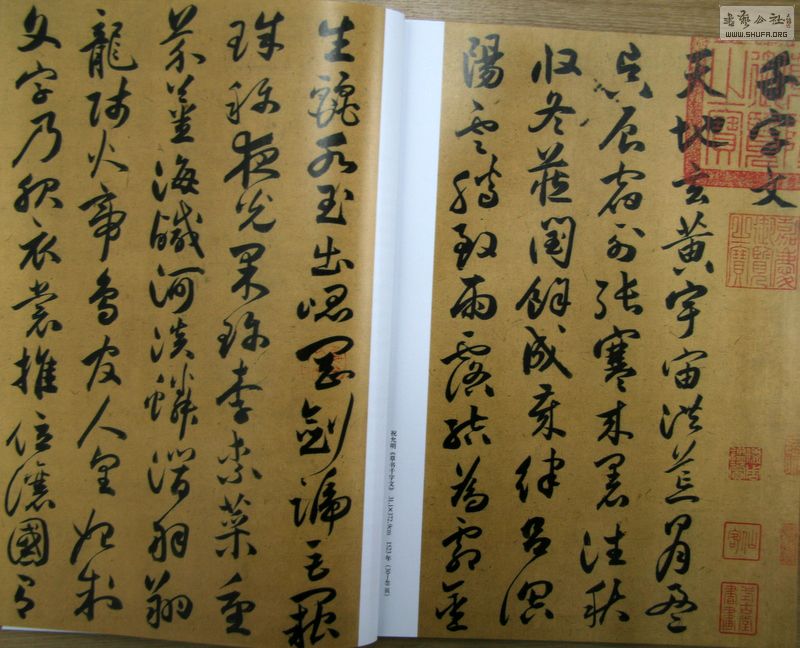 千字文
天地玄黃宇宙洪荒日月盈
昃辰宿列張寒來暑往秋
收冬藏閏餘成歲律呂調
陽雲騰致雨露結為霜金
生麗水玉出崐岡劍號巨闕
珠稱夜光果珍李柰菜重
芥薑海鹹河淡鱗潛羽翔
龍師火帝鳥官人皇始制
文字乃服衣裳推位讓國有
祝允明《草书千字文》 1523年
嘉慶御覽之寶
書藝公社
WWW.SHUFA.ORG